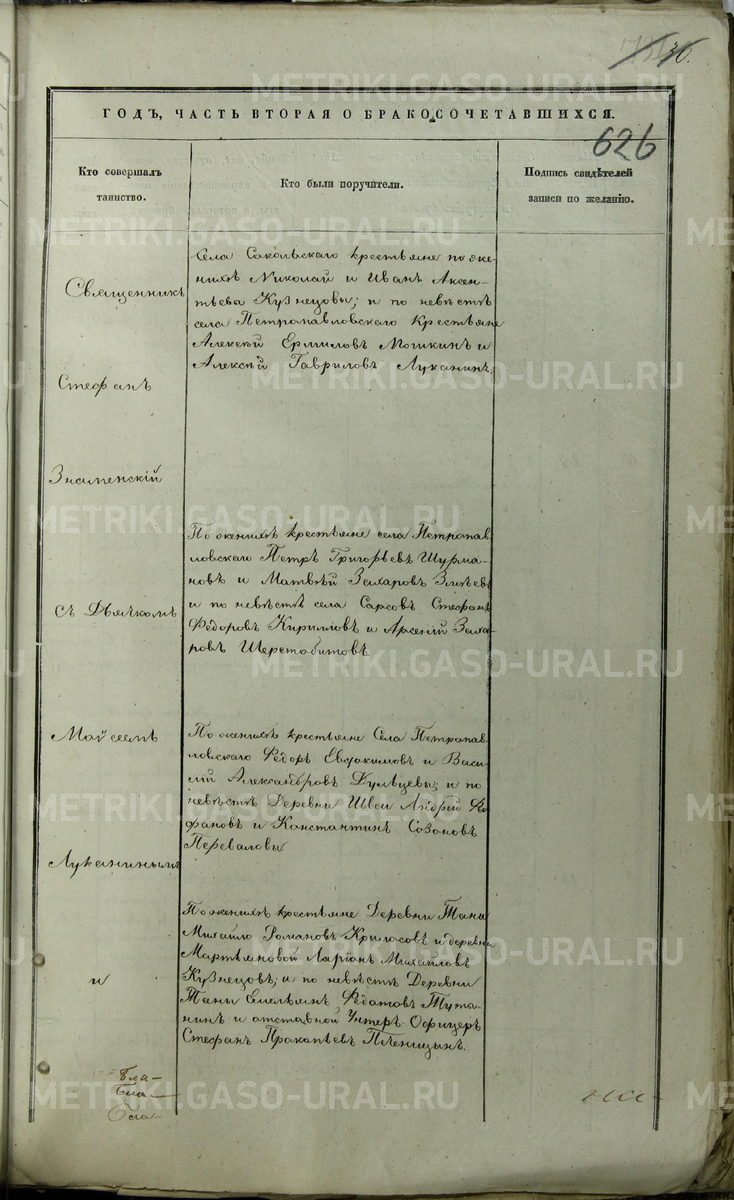 30.
ГОДЪ, ЧАСТЬ ВТОРАЯ О БРАКОСОЧЕТАВШИХСЯ.
626
Кто совершалъ
таинство.
Кто были поручители.
Подпись свидѣтелей
записи по желанію.
Священникъ
Стефанъ
Знаменскій
съ Дьячкомъ
Моѵсеемъ
Луканинымъ
и
Села Сокольскаго крестьяне по же-
нихѣ Николай и Иванъ Аксен-
тьева Кузнецовы; и по невѣстѣ
села Петропавловскаго Крестьяне
Алексѣй Ермиловъ Мошкинъ и
Алексѣй Гавриловъ Луканинъ.
По женихѣ крестьяне села Петропав-
ловскаго Петръ Григорьевъ Шурма-
новъ и Матвѣй Захаровъ
и по невѣстѣ села Сарсовъ Стефанъ
Федоровъ Кирилловъ и Арсеній Заха-
ровъ Шерстобитовъ
По женихѣ крестьяне Села Петропав-
ловскаго Федоръ Евдокимовъ и Васи-
лій Александровъ Дульцевы; и по
невѣстѣ Деревни Швеи Андрей Фо-
фановъ и Константинъ Созоновъ
Переваловы
По женихѣ крестьяне Деревни Таны
Михайло Романовъ Крыласовъ и деревни
Мартьяновой Ларіонъ Михайловъ
Кузнецовъ; и по невѣстѣ Деревни
Таны Емельянъ Федотовъ Тута-
нинъ и отставной Унтеръ Офицеръ
Стефанъ Прокопьевъ Пленицынъ.
METRIKI.GASO-URAL.RU